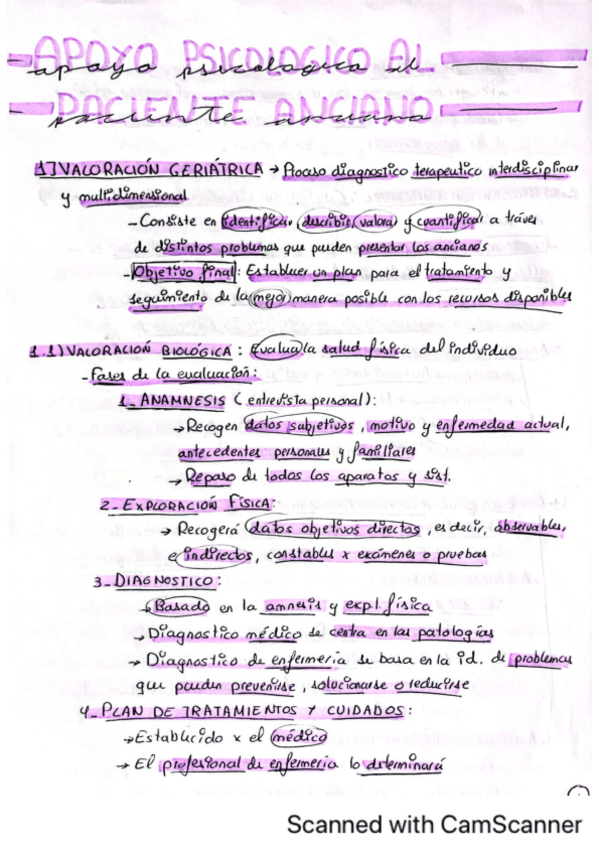 APOYO PSICOLOGICO AL
apoyo psicologico al
PACIENTE ANCIANO
paciente anciano
1] VALORACIÓN GERIÁTRICA → Proceso diagnostico terapeutico interdisciplinar
y multidimensional
- Consiste en identificar, describir, valorar y cuantificar a tráves
de distintos problemas que pueden presentar los ancianos
- Objetivo final: Establecer un plan para el tratamiento y
seguimiento de la mejor manera posible con los recursos disponibles
1.1) VALORACIÓN BIOLÓGICA: Evalua la salud física del individuo
- Fases de la evaluación:
1_ ANAMNESIS (entrevista personal):
→ Recogen datos subjetivos, motivo y enfermedad actual,
antecedentes personales y familiares
→ Repaso de todos los aparatos y sist.
2_ EXPLORACIÓN FÍSICA:
→ Recogerá datos objetivos directos, es decir, observables,
e indirectos, constables x exámenes o pruebas
3_ DIAGNOSTICO:
→ Basado en la amnesis y expl. física
→ Diagnostico médico se centra en las patologías
→ Diagnostico de enfermería se basa en la id. de problemas
que pueden prevenirse, solucionarse o reducirse
4_ PLAN DE TRATAMIENTOS Y CUIDADOS:
→ Establecido x el médico
→ El profesional de enfermería lo determinará
1
Scanned with CamScanner